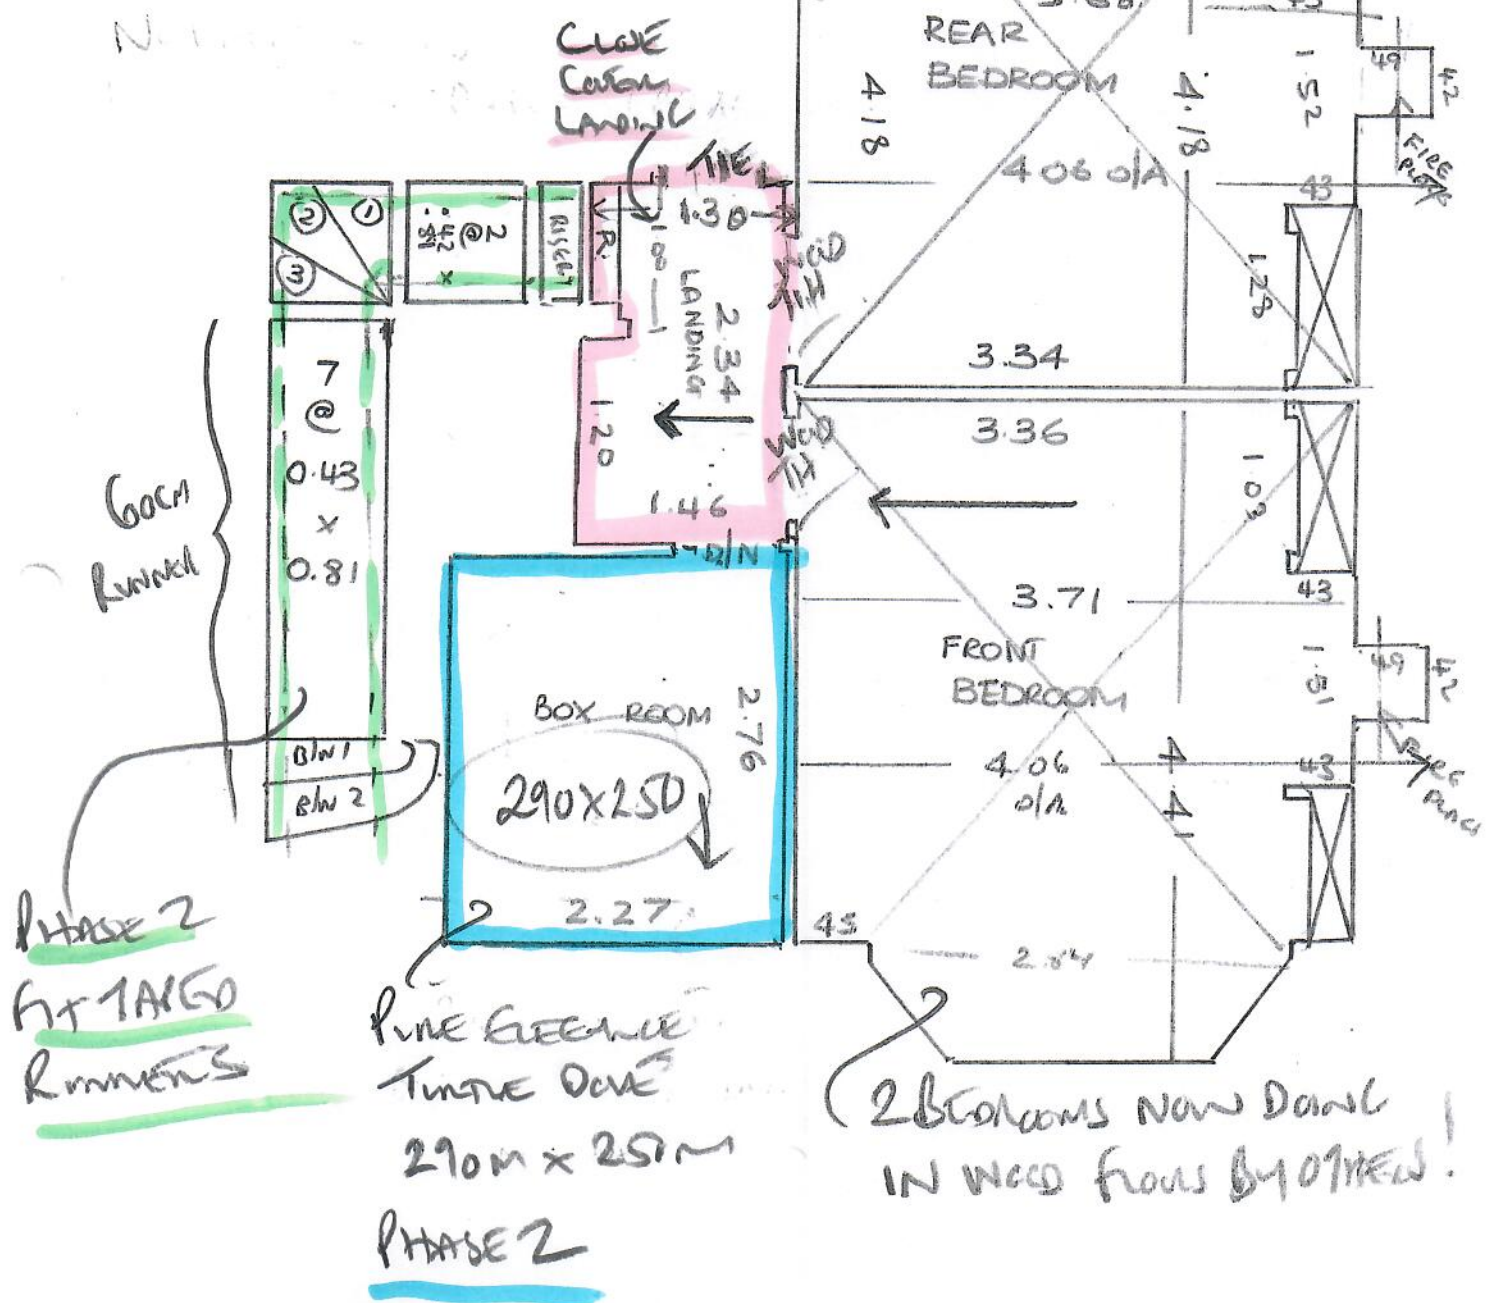 CLOSE
COVER
LANDING
REAR
BEDROOM
4.18
4.18
1.52
49
42
FIRE
PLACE
4.06 O/A
43
TILE
1.30
1.08
R.
RISER
2
@
.42
x
.81
1
2
3
LANDING
2.34
WOOD
1.28
3.34
3.36
1.20
WOOD
1.46
D/N
1.03
7
@
0.43
x
0.81
60CM
RUNNER
3.71
43
FRONT
BEDROOM
1.51
49
42
FIRE
PLACE
BOX ROOM
2.76
290X250
4.06
O/A
4.41
43
B/N 1
B/N 2
2.27
45
2.84
PHASE 2
FIT TAPED
RUNNERS
PURE ELEGANCE
TURTLE DOVE
290M x 250M
PHASE 2
2 BEDROOMS NOW DOING
IN WOOD FLOORS BY OTHERS!